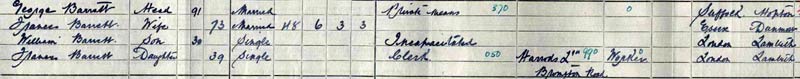 George Barrett Head 91 Married Private means 370 0 Suffolk Hopton
Frances Barrett Wife 73 Married 48 6 3 3 Essex Dunmow
William Barrett Son 30 Single Incapacitated London Lambeth
Frances Barrett Daughter 39 Single Clerk 050 Harrods Ltd 990 Worker London Lambeth
Brompton Road